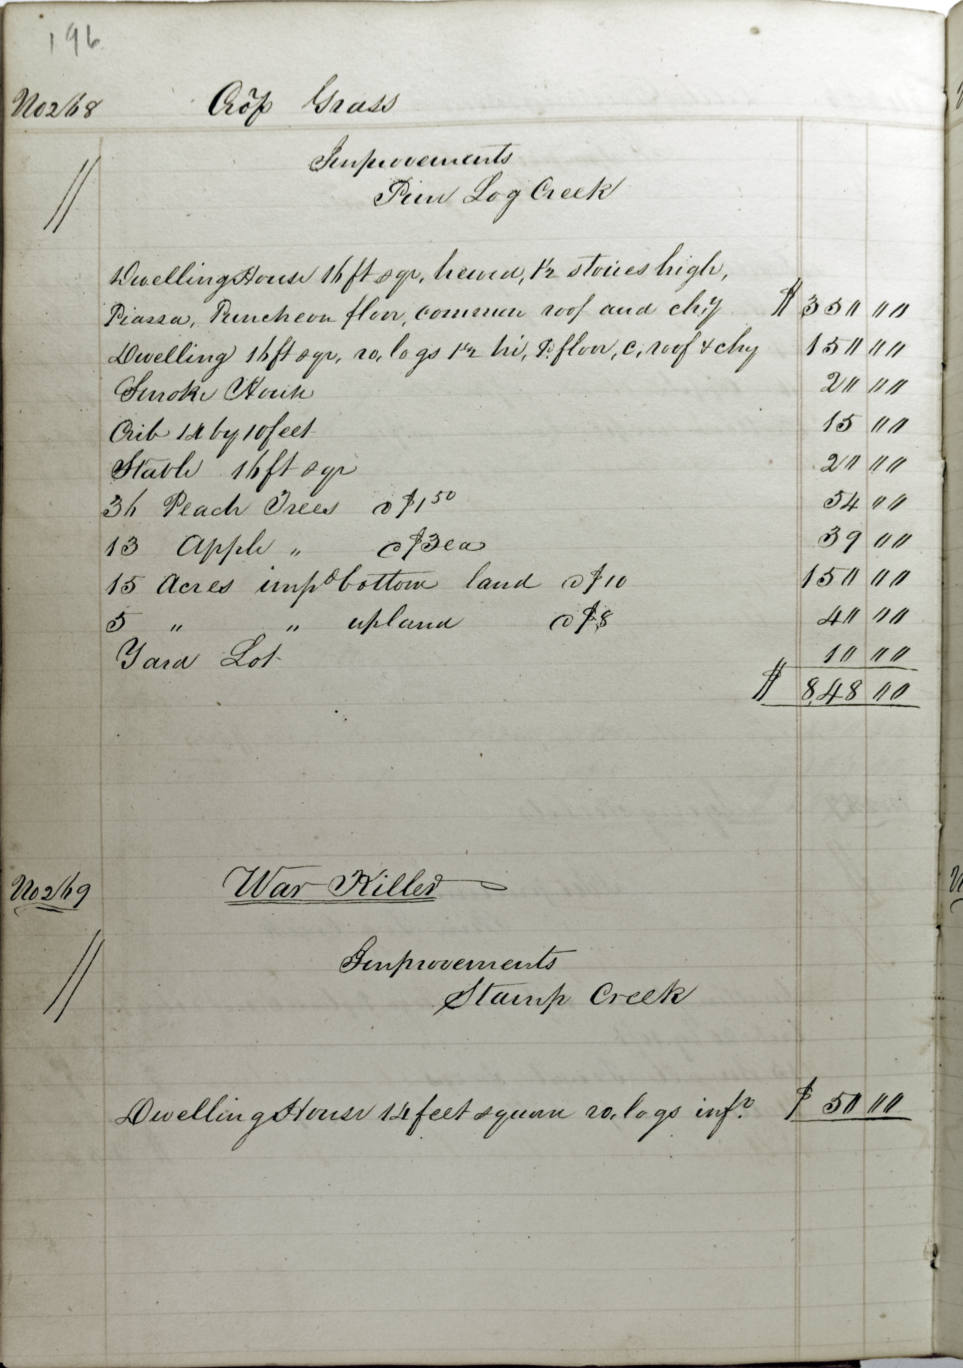 196
No 268 Crop Grass
Improvements
Pine Log Creek
Dwelling House 16 ft sqr, hewed, 1½ stories high,
Piazza, Puncheon floor, common roof and chy $ 350 00
Dwelling 16 ft sqr, ro, logs 1½ hi, P. floor, c, roof & chy 150 00
Smoke House 20 00
Crib 14 by 10 feet 15 00
Stable 16 ft sqr 20 00
36 Peach Trees @ $1 50 54 00
13 Apple " @ $3 ea 39 00
15 Acres impd bottom land @ $10 150 00
5 " " upland @ $8 40 00
Yard Lot 10 00
$ 848 00
No 269 War Killer
Improvements
Stamp Creek
Dwelling House 14 feet square ro, logs infr $ 50 00